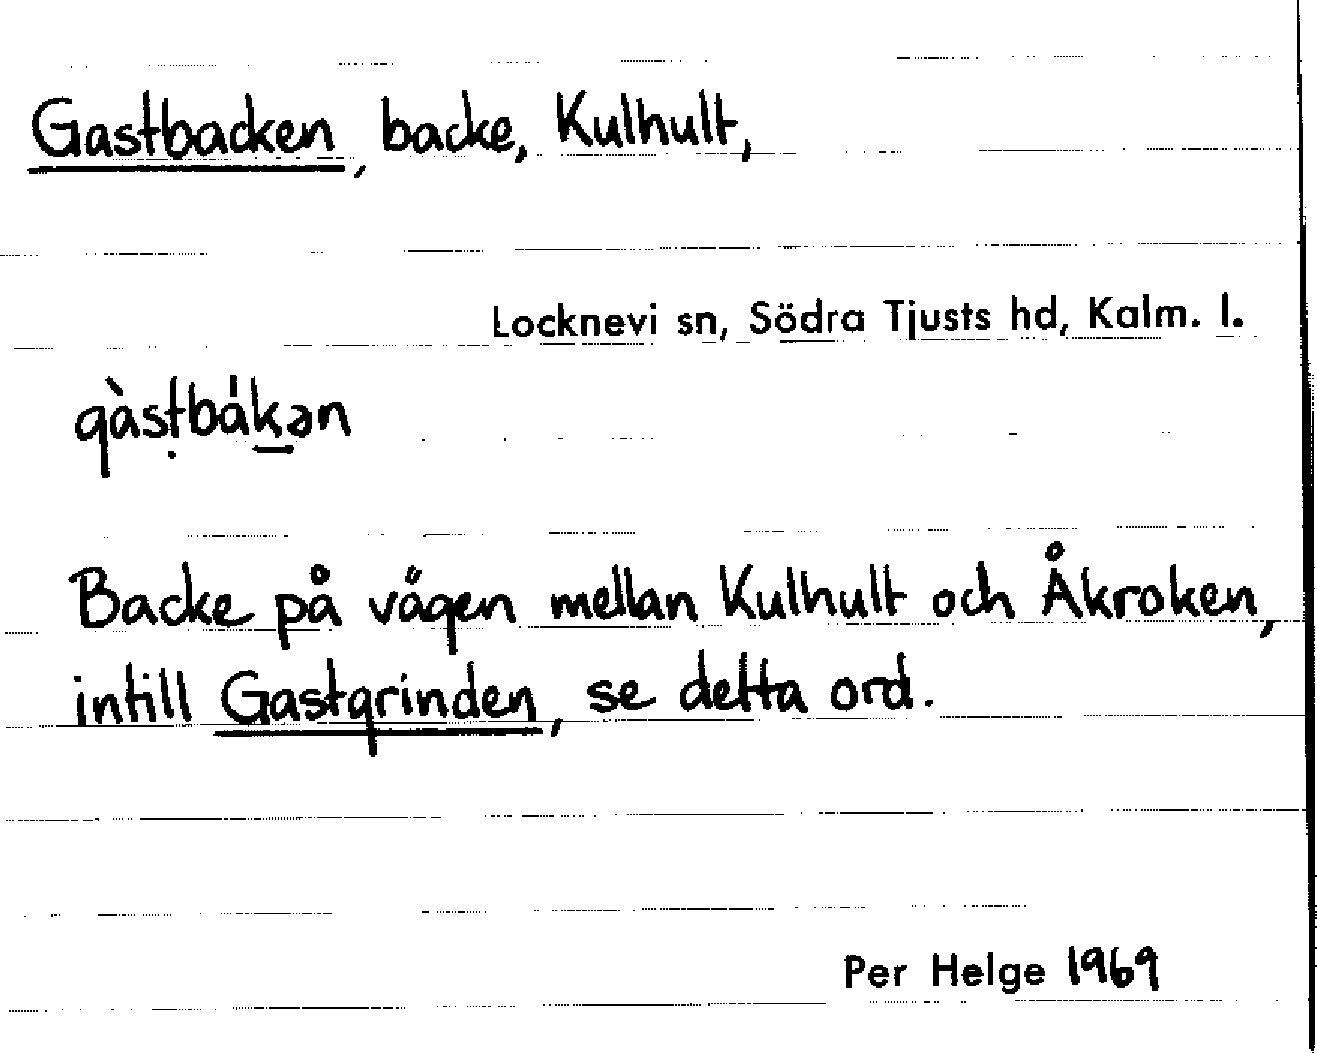 Gastbacken, backe, Kulhult,
Locknevi sn, Södra Tjusts hd, Kalm. l.
gàsṭbák̲ən
Backe på vägen mellan Kulhult och Åkroken,
intill Gastgrinden, se detta ord.
Per Helge 1969